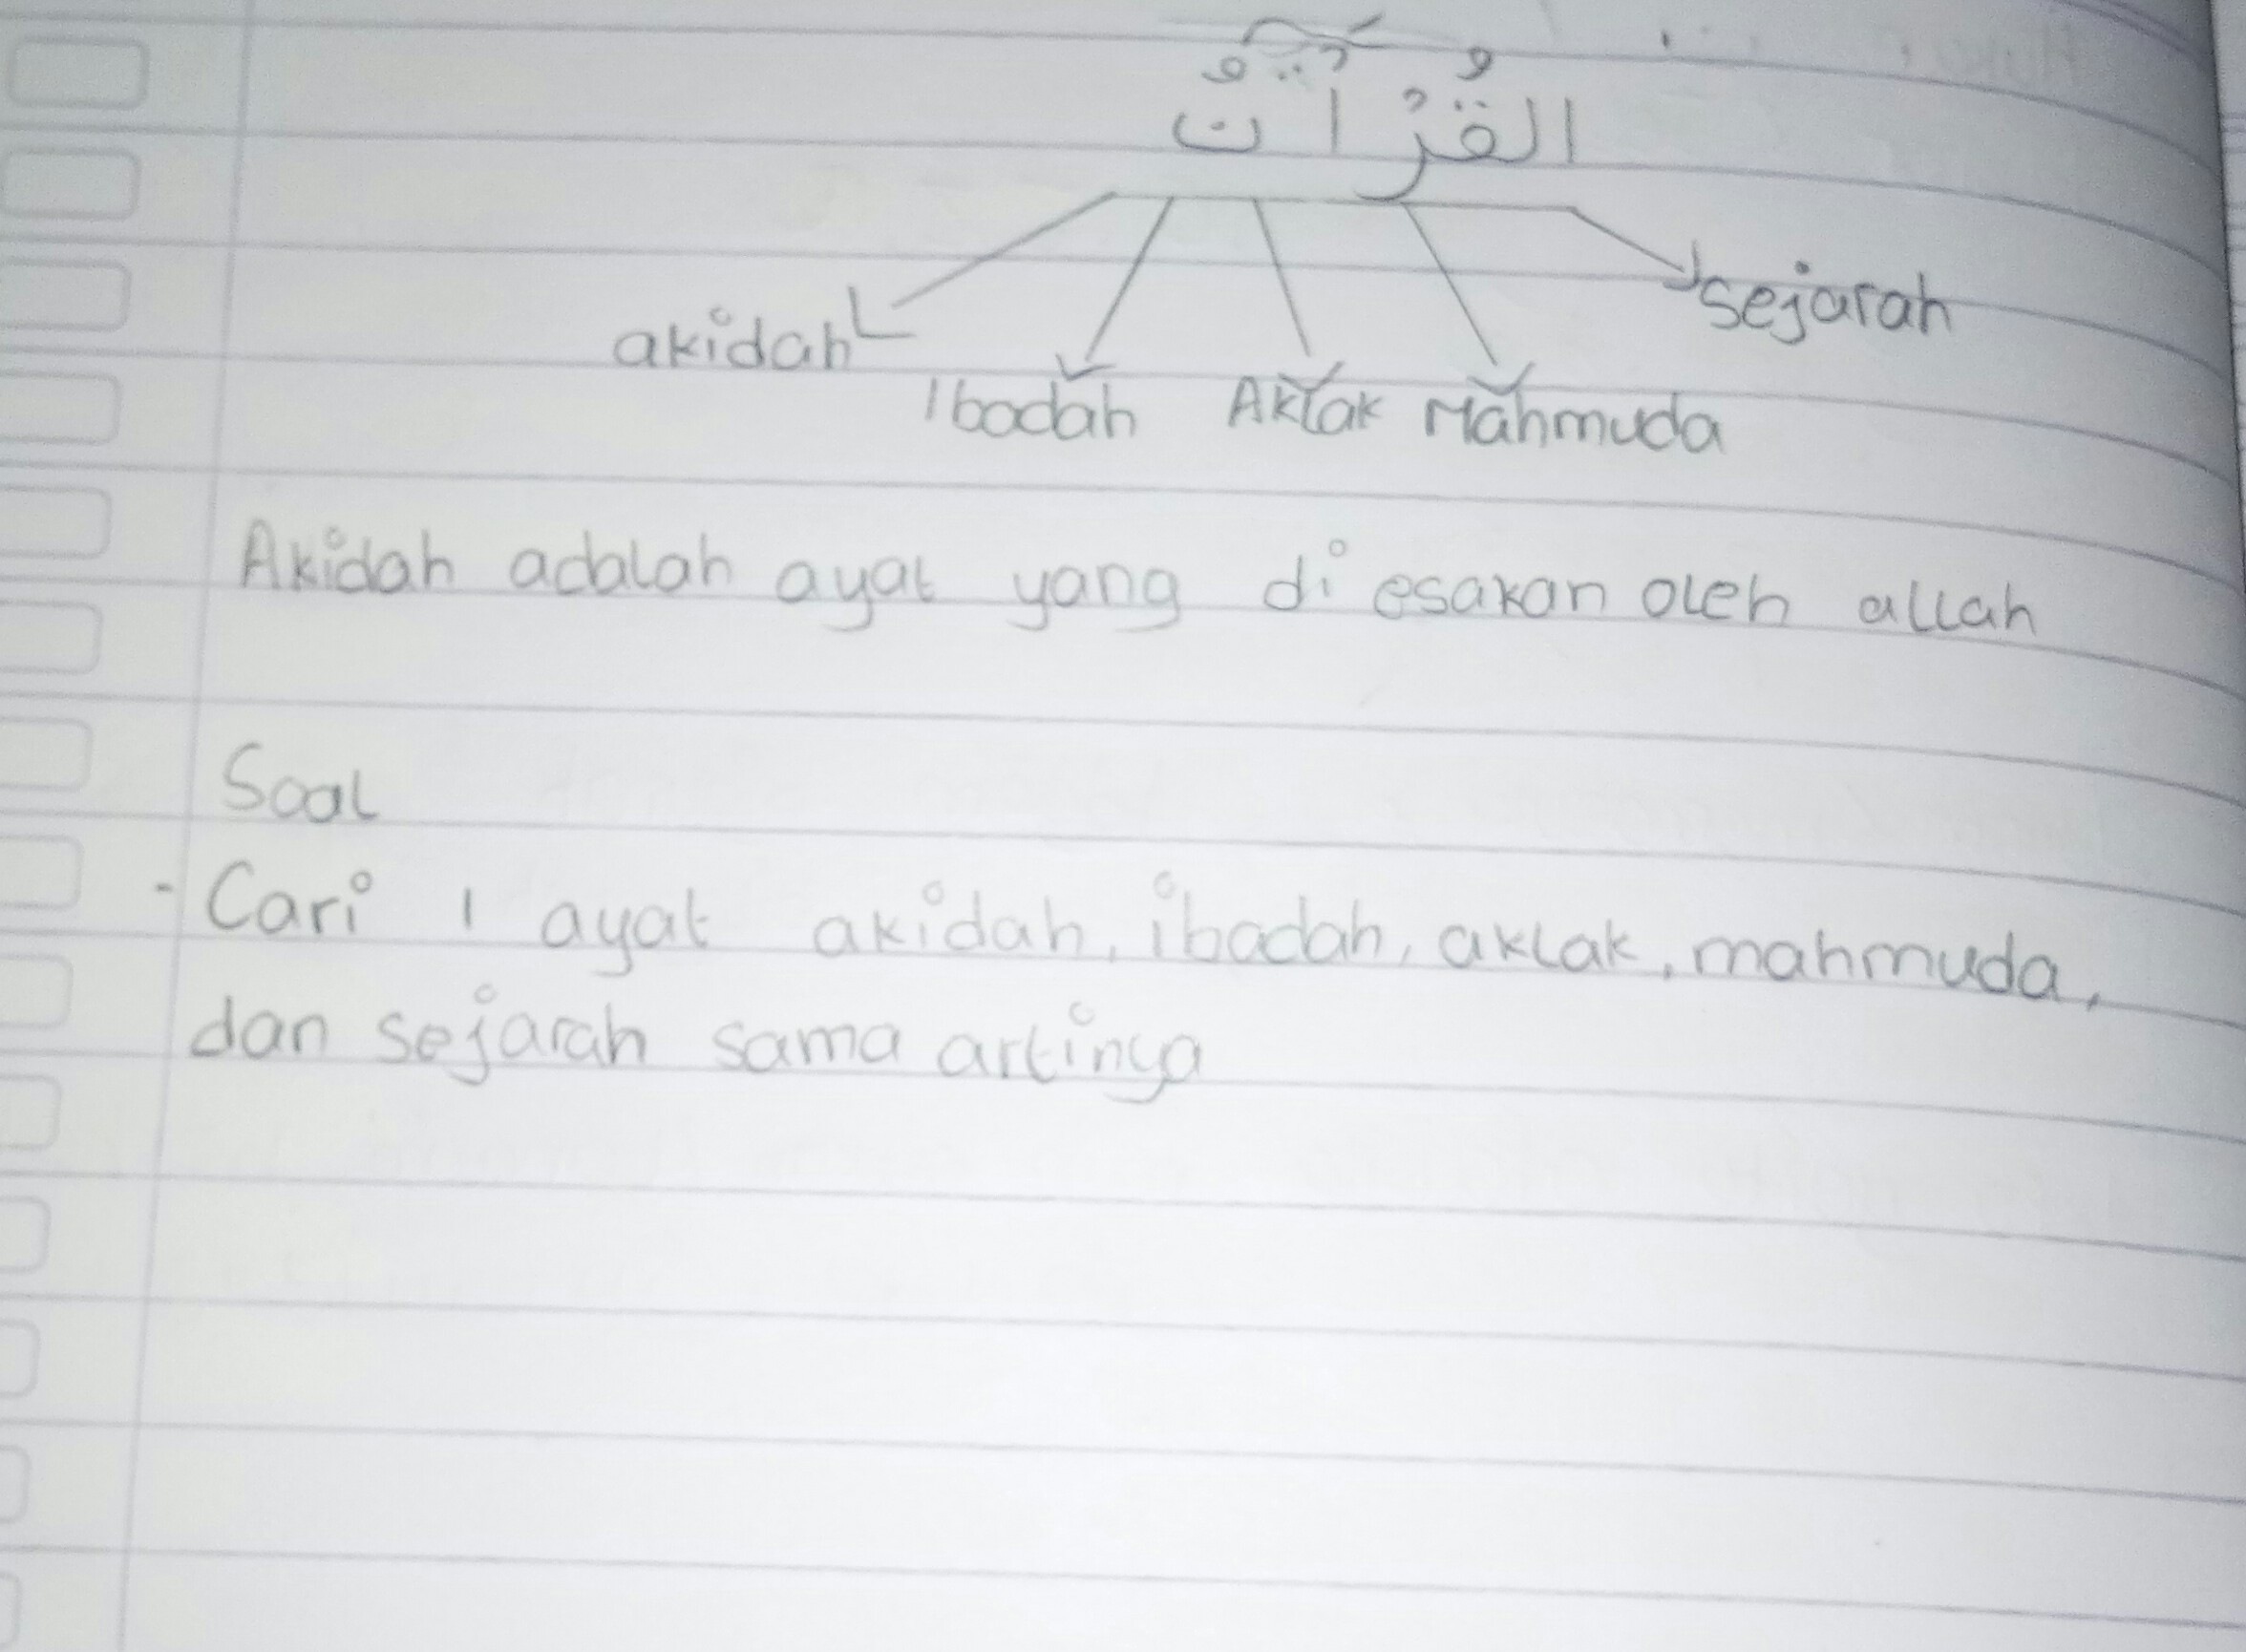 القُرْآنُ
akidah
Ibadah Aklak Mahmuda
sejarah
Akidah adalah ayat yang di esakan oleh allah
Soal
- Cari 1 ayat akidah, ibadah, aklak, mahmuda,
dan sejarah sama artinya